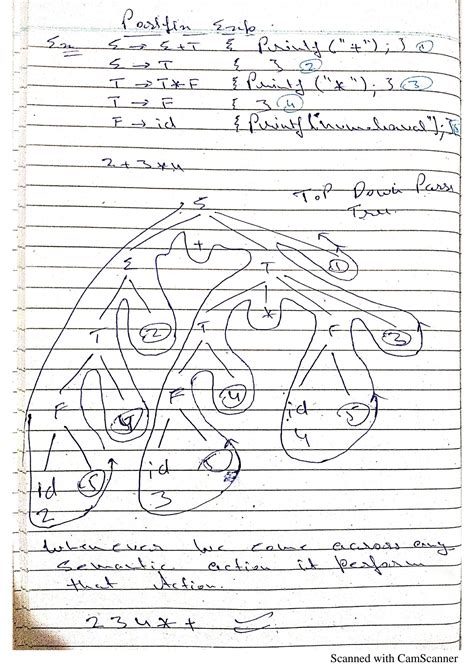 Postfix Exp.
Ex
E → E+T { Printf("+"); } ①
E → T { } ②
T → T*F { Printf("*"); } ③
T → F { } ④
F → id { Printf("numeral"); } ⑤
2+3*4
Top Down Pass
Tree
E
+
E T ①
*
T ② T F ③
F ④ F ④ id ⑤
4
id ⑤ id ⑤
2 3
Whenever we come across any
semantic action it perform
that Action.
2 3 4 * +
Scanned with CamScanner